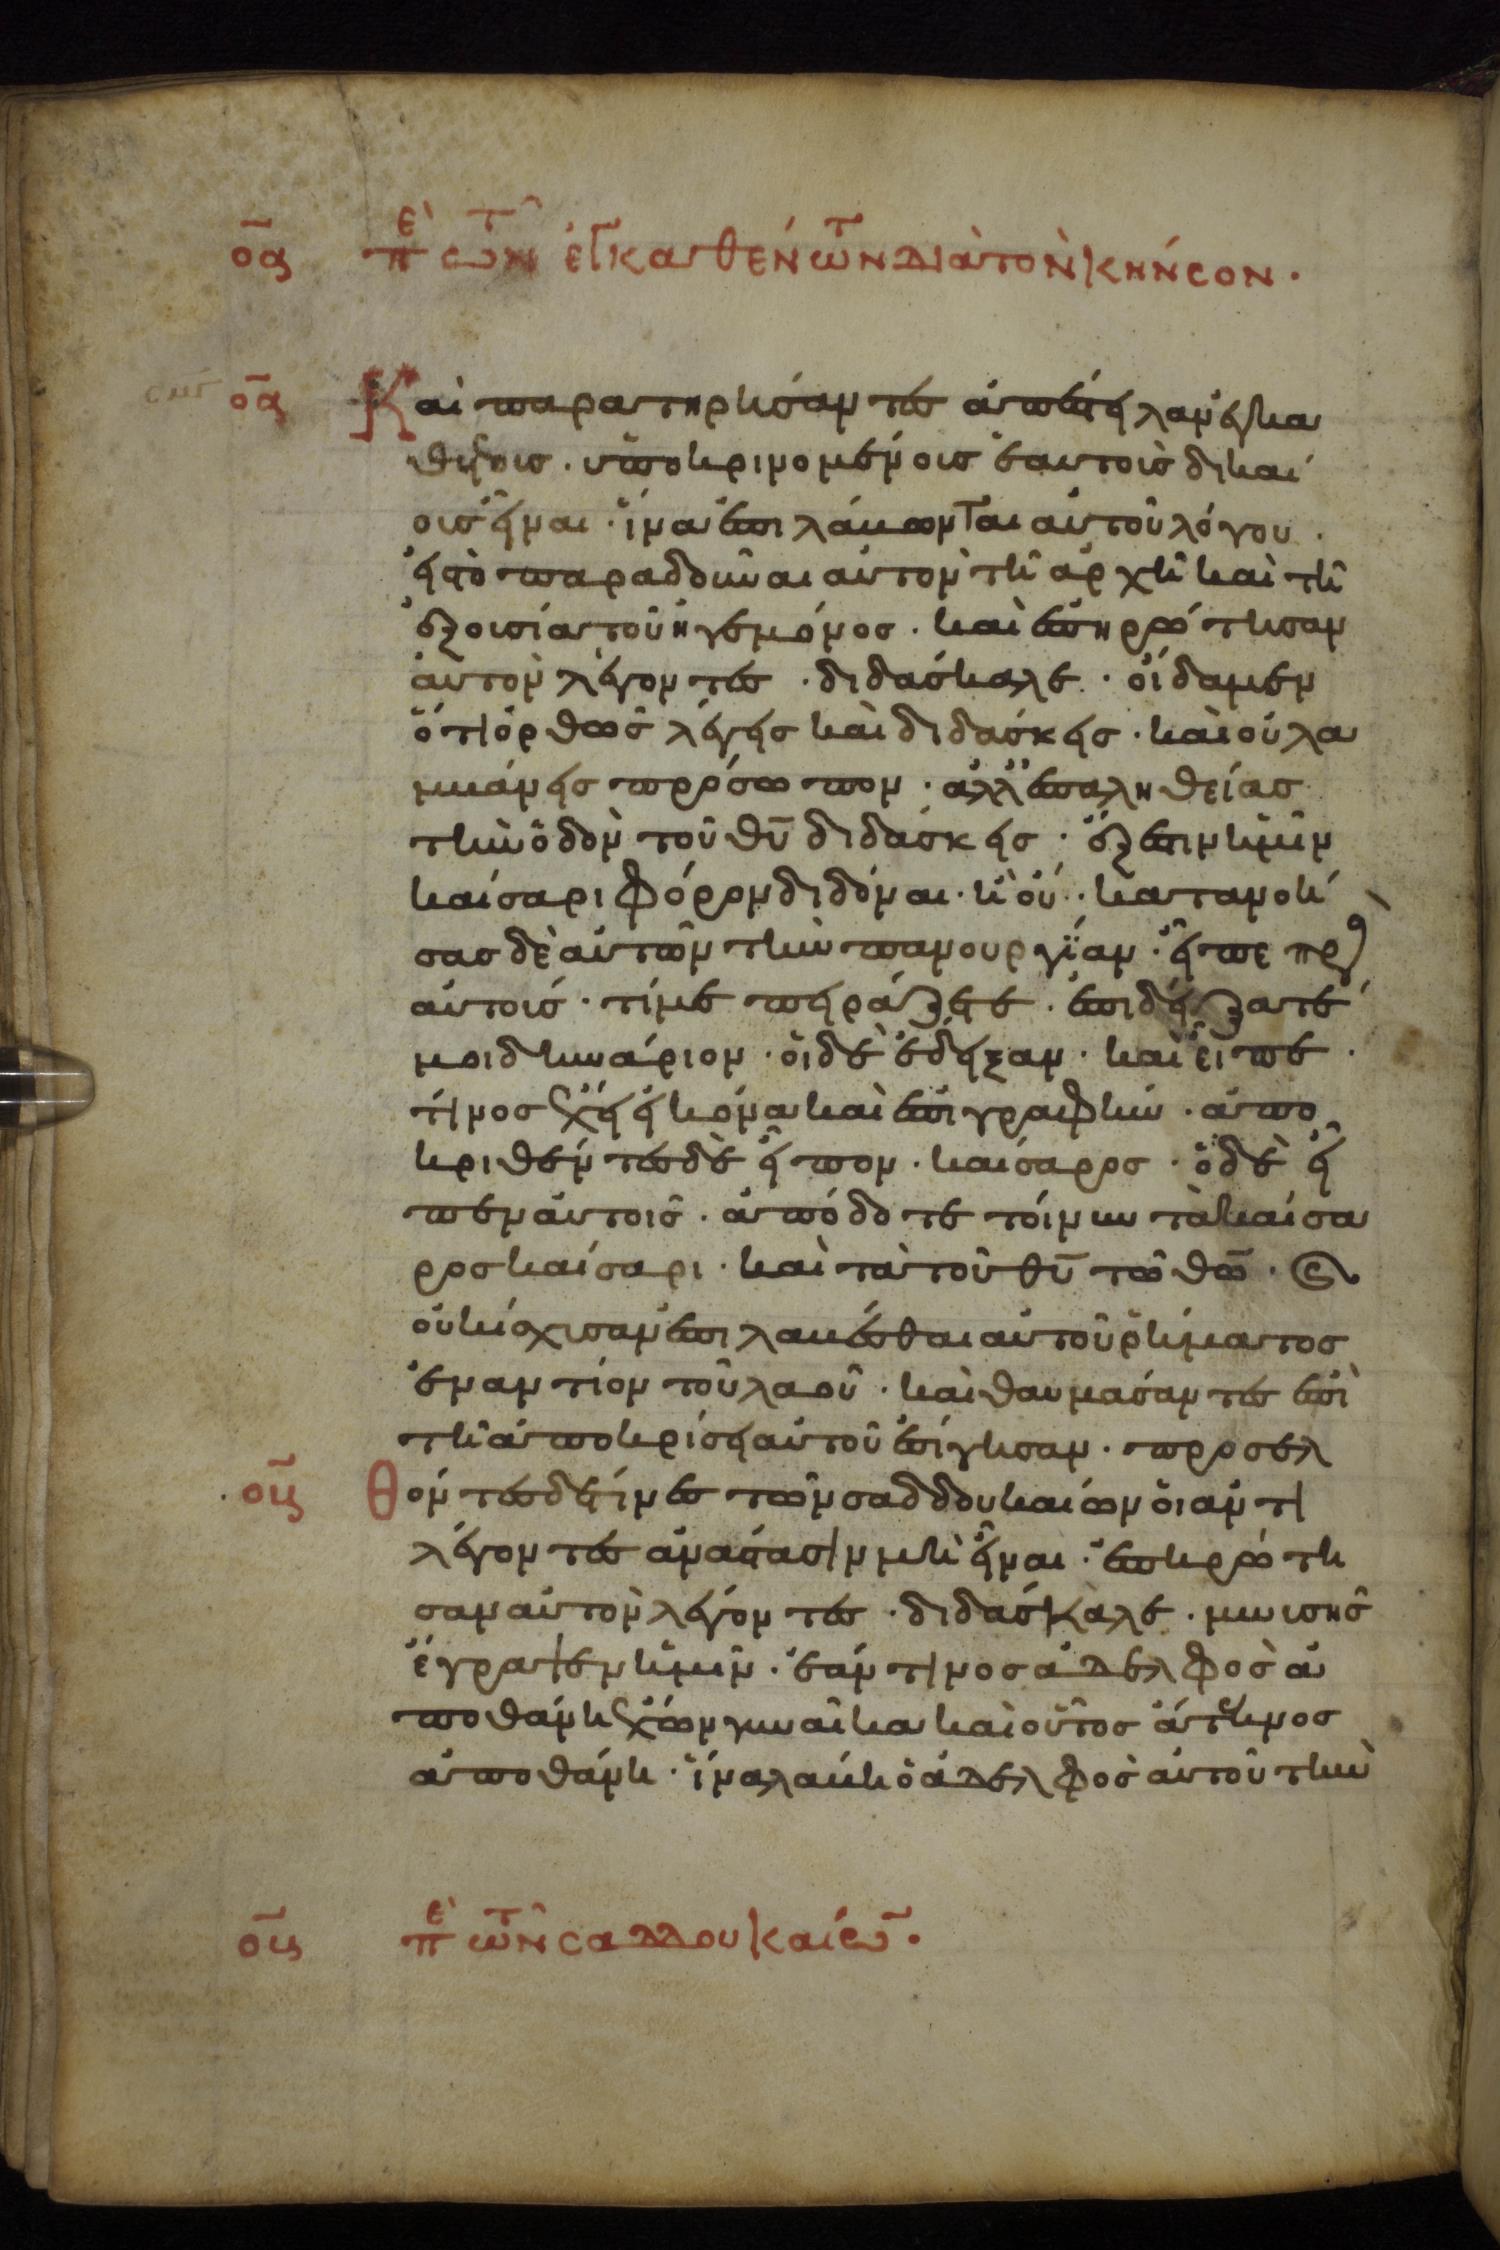 ο̅α̅ πὲ τω̂ν ἐγκαθέντων διὰ τὸν κῆνσον.
ο̅α̅ Καὶ παρατηρήσαντες ἀπέστειλαν ἐγκα
θέτοις· ὑποκρινομένοις ἑαυτοὶς δικαί
οις εἶναι· ἵνα ἐπιλάβωνται αὐτοῦ λόγου·
εἰς τὸ παραδοῦναι αὐτὸν τῆ ἀρχῆ καὶ τῆ
ἐξουσία τοῦ ἡγεμόνος· καὶ ἐπηρώτησαν
αὐτὸν λέγοντες· διδάσκαλε· οἴδαμεν
ὅτι ὀρθῶς λέγεις καὶ διδάσκεις· καὶ οὐ λα
μβάνεις πρόσωπον· ἀλλ' ἐπαληθείας
τὴν ὁδὸν τοῦ θ̅υ̅ διδάσκεις· ἔξεστιν ἡμῖν
καίσαρι φόρον διδόναι· ἢ οὔ· κατανοή
σας δὲ αὐτῶν τὴν πανουργίαν· εἶπε πρὸ
αὐτοὺς· τί με πειράζετε· ἐπιδείξατέ
μοι δηνάριον· οἱ δὲ ἔδειξαν· καὶ εἶπε·
τίνος ἔχει εἰκόνα καὶ ἐπιγραφήν· ἀπο
κριθέντες δὲ εἶπον· καίσαρος· ὁ δὲ εἶ
πεν αὐτοῖς· ἀπόδοτε τοίνυν τὰ καίσα
ρος καίσαρι· καὶ τὰ τοῦ θ̅υ̅ τῶ θ̅ω̅· καὶ
οὐκ ἴσχισαν ἐπιλαβέσθαι αὐτοῦ ῥήματος
ἐναντίον τοῦ λαοῦ· καὶ θαυμάσαντες ἐπὶ
τῆ ἀποκρίσει αὐτοῦ ἐσίγησαν· προσελ
ο̅β̅ θόντες δέ τινες τῶν σαδδουκαίων οἱ ἀντι
λέγοντες ἀνάστασιν μὴ εἶναι· ἐπηρώτη
σαν αὐτὸν λέγοντες· διδάσκαλε· μωισῆς
ἔγραψεν ἡμῖν· ἐάν τινος ἀδελφὸς ἀ
ποθάνη ἔχων γυναῖκα καὶ οὗτος ἄτεκνος
ἀποθάνη· ἵνα λάβη ὁ ἀδελφὸς αὐτοῦ τὴν
ο̅β̅ πὲ τω̂ν σαδδουκαίω̅.